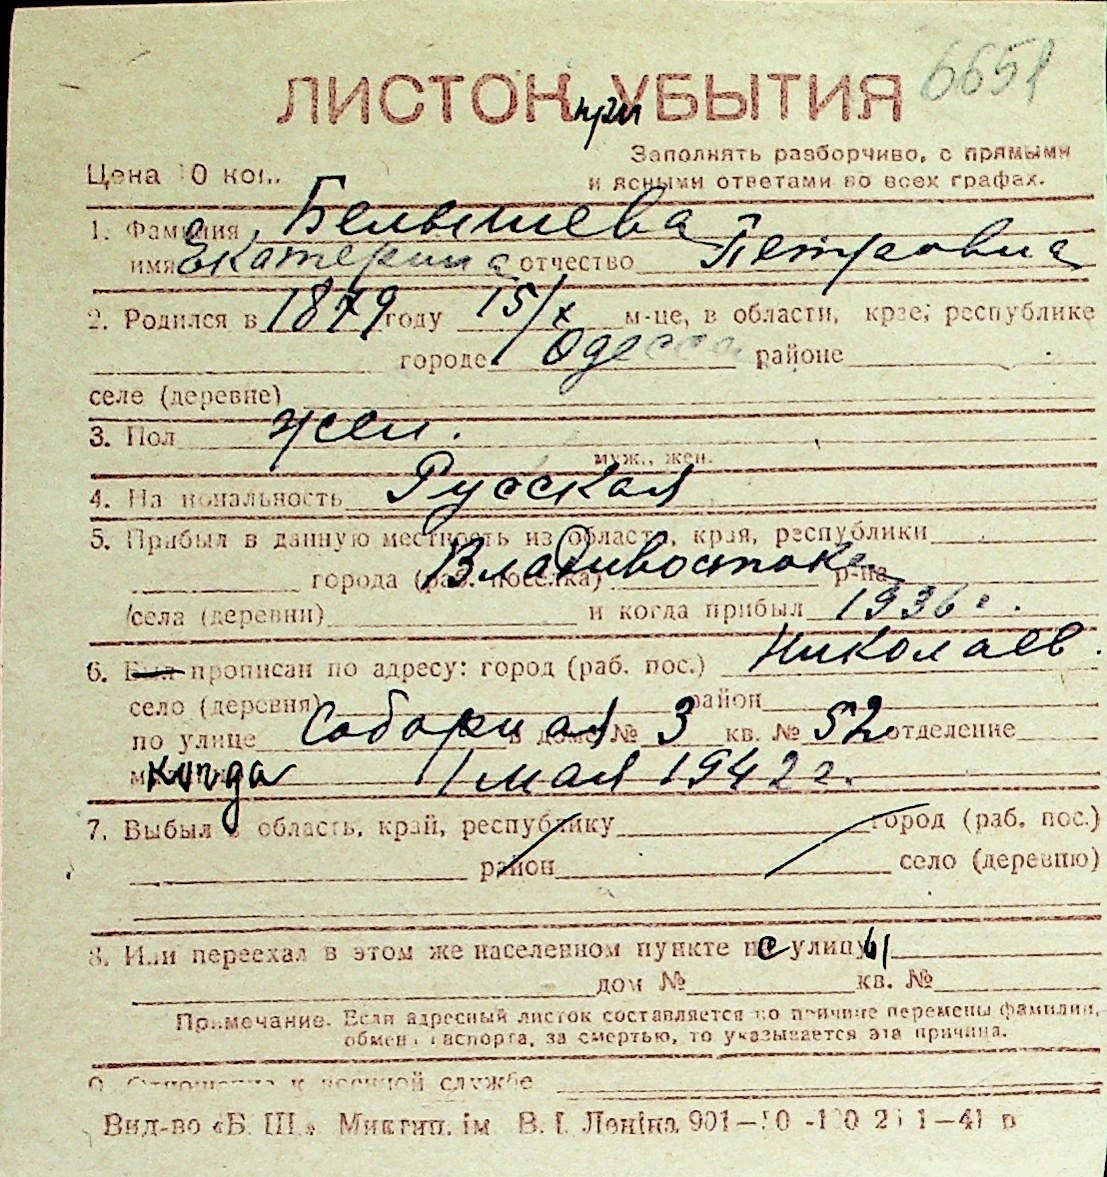 6651
ЛИСТОК при УБЫТИЯ
Заполнять разборчиво, с прямыми
Цена 10 коп.
и ясными ответами во всех графах.
1. Фамилия Белышева
имя Екатерина отчество Петровна
2. Родился в 1879 году 15/X м-це, в области, крае, республике
городе Одесса районе
селе (деревне)
3. Пол жен.
муж., жен.
4. Национальность Русская
5. Прибыл в данную местность из области, края, республики
города (раб. поселка) Владивостока р-на
села (деревни) и когда прибыл 1936 г.
6. Был прописан по адресу: город (раб. пос.) Николаев.
село (деревня) район
по улице Соборная в доме № 3 кв. № 52 отделение
когда 1 мая 1942 г.
7. Выбыл в область, край, республику город (раб. пос.)
район село (деревню)
8. Или переехал в этом же населенном пункте с улицы
дом № кв. №
Примечание. Если адресный листок составляется по причине перемены фамилии,
обмена паспорта, за смертью, то указывается эта причина.
9. Отношение к военной службе
Вид-во «Б. Ш.» Микгип. ім В. І. Леніна 901